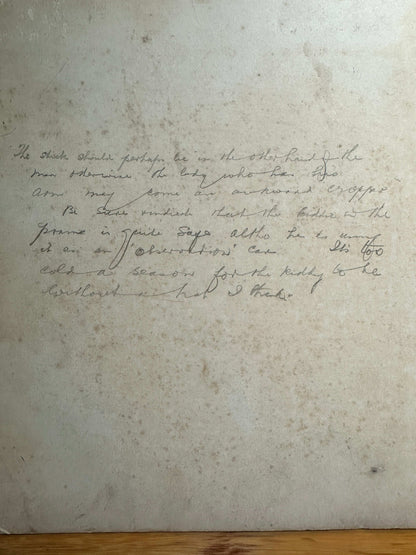 "The stick should perhaps be in the other hand of the
man otherwise the lady who has his
arm may come an awkward cropper"
Be Sure that the kiddie in the
prame is quite safe altho he is using
it as an 'observation' car. Its too
cold a season for the kiddy to be
without a hat I think.